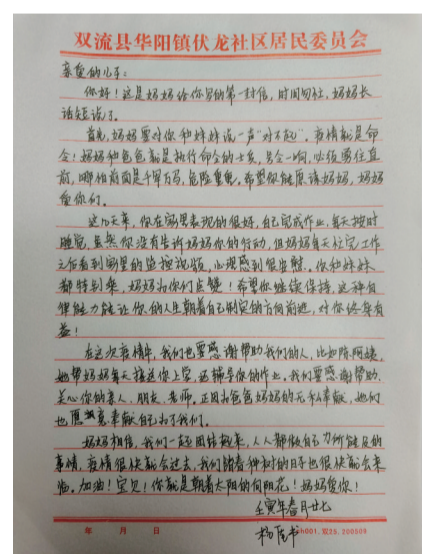 双流县华阳镇伏龙社区居民委员会
亲爱的儿子：
你好！这是妈妈给你写的第一封信，时间匆社，妈妈长
话短说了。
首先，妈妈要对你和妹妹说一声“对不起”。疫情就是命
令！妈妈和爸爸就是执行命令的士兵，号令一响，必须勇往直
前，哪怕前面是千军万马，危险重重，希望你能原谅妈妈，妈妈
爱你们。
这几天来，你在家里表现的很好，自己完成作业，每天按时
睡觉，虽然你没有告诉妈妈你的行动，但妈妈每天忙完工作
之后看到家里的监控视频，心理感到很安慰。你和妹妹
都特别乖，妈妈为你们点赞！希望你继续保持，这种自
律能力能让你的人生朝着自己制定的方向前进，对你终身有
益！
在这次疫情中，我们也要感谢帮助我们的人，比如陈阿姨，
她帮妈妈每天接送你上学，还辅导你的作业。我们要感谢帮助、
关心你的亲人、朋友、老师，正因为爸爸妈妈的无私奉献，她们
也愿意奉献自己为了我们。
妈妈相信，我们一起团结起来，人人都做自己力所能及的
事情，疫情很快就会过去，我们踏春种树的日子也很快就会来
临。加油！宝贝！你就是朝着太阳的向阳花！妈妈爱你！
壬寅年春月廿七
书
年 月 日
h001.双25.200509